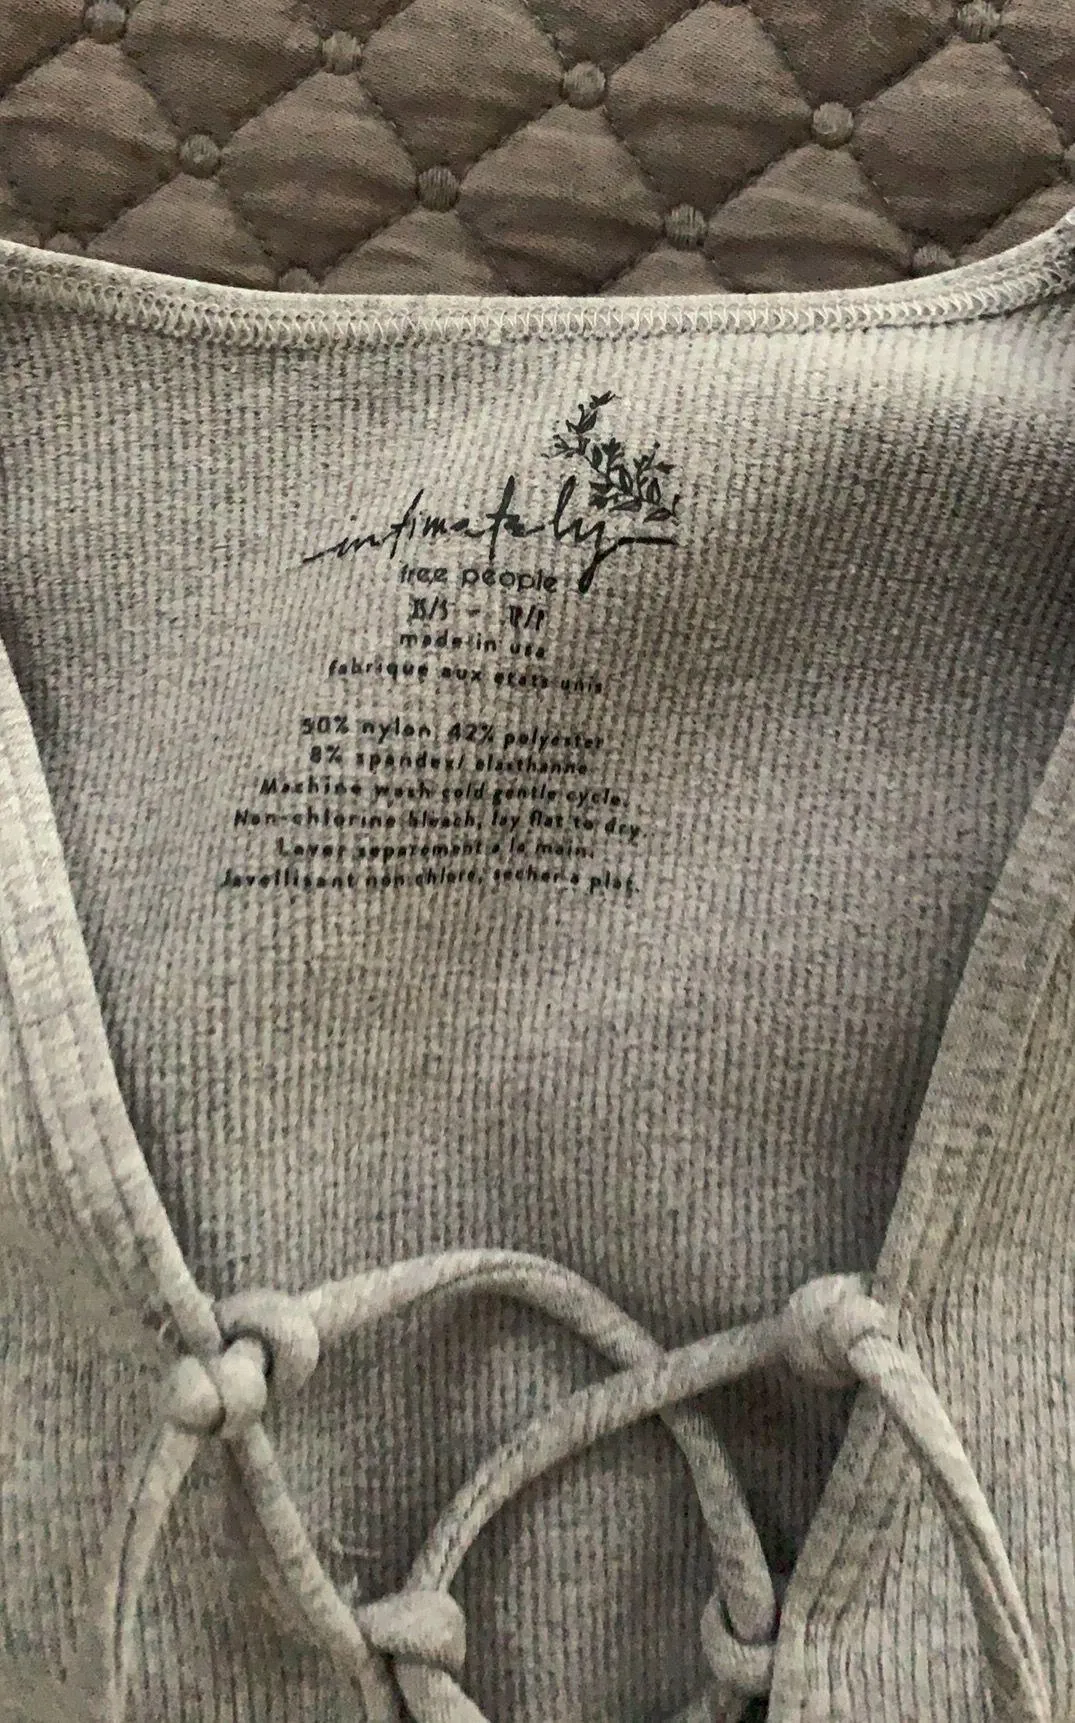 intimately
free people
XS/S - TP/P
made in usa
fabrique aux etats unis
50% nylon, 42% polyester
8% spandex/ elasthanne
Machine wash cold gentle cycle.
Non-chlorine bleach, lay flat to dry.
Laver separement a la main.
Javellisant non chlore, secher a plat.